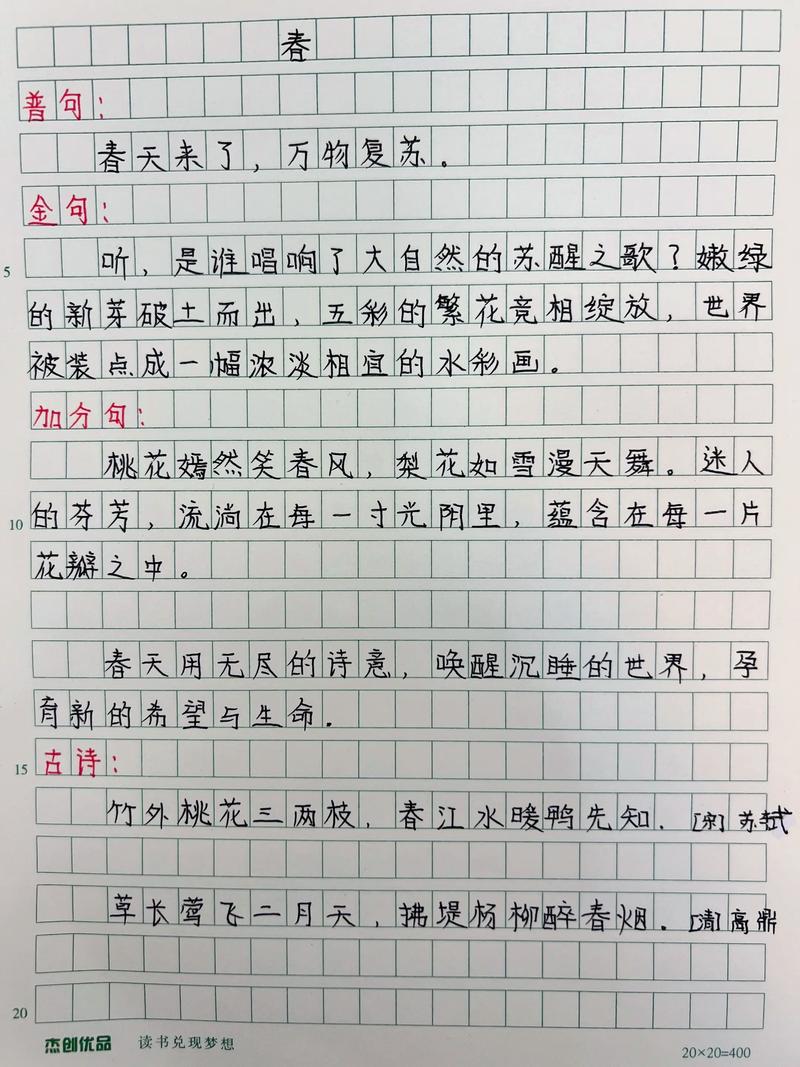 春
普句：
春天来了，万物复苏。
金句：
5 听，是谁唱响了大自然的苏醒之歌？嫩绿
的新芽破土而出，五彩的繁花竞相绽放，世界
被装点成一幅浓淡相宜的水彩画。
加分句：
桃花嫣然笑春风，梨花如雪漫天舞。迷人
10 的芬芳，流淌在每一寸光阴里，蕴含在每一片
花瓣之中。
春天用无尽的诗意，唤醒沉睡的世界，孕
育新的希望与生命.
15 古诗：
竹外桃花三两枝，春江水暖鸭先知. [宋]苏轼
草长莺飞二月天，拂堤杨柳醉春烟. [清]高鼎
20
杰创优品 读书兑现梦想 20×20=400